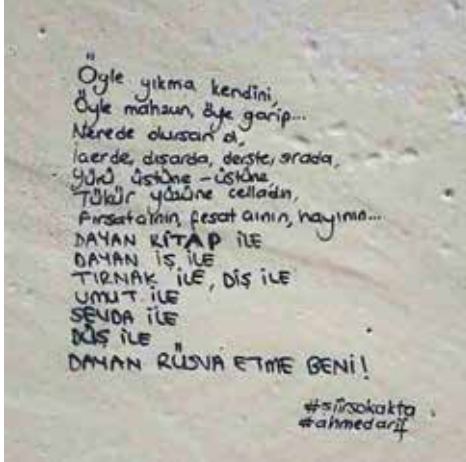 Öyle yıkma kendini,
Öyle mahsun, öyle garip...
Nerede olursan ol,
İçerde, dışarda, derste, sırada,
Yürü üstüne - üstüne
Tükür yüzüne celladın,
Fırsatçının, fesatçının, hayının...
DAYAN KİTAP İLE
DAYAN İŞ İLE
TIRNAK İLE, DİŞ İLE
UMUT İLE
SEVDA İLE
DÜŞ İLE
DAYAN RÜSVA ETME BENİ!
#siirsokakta
#ahmedarif